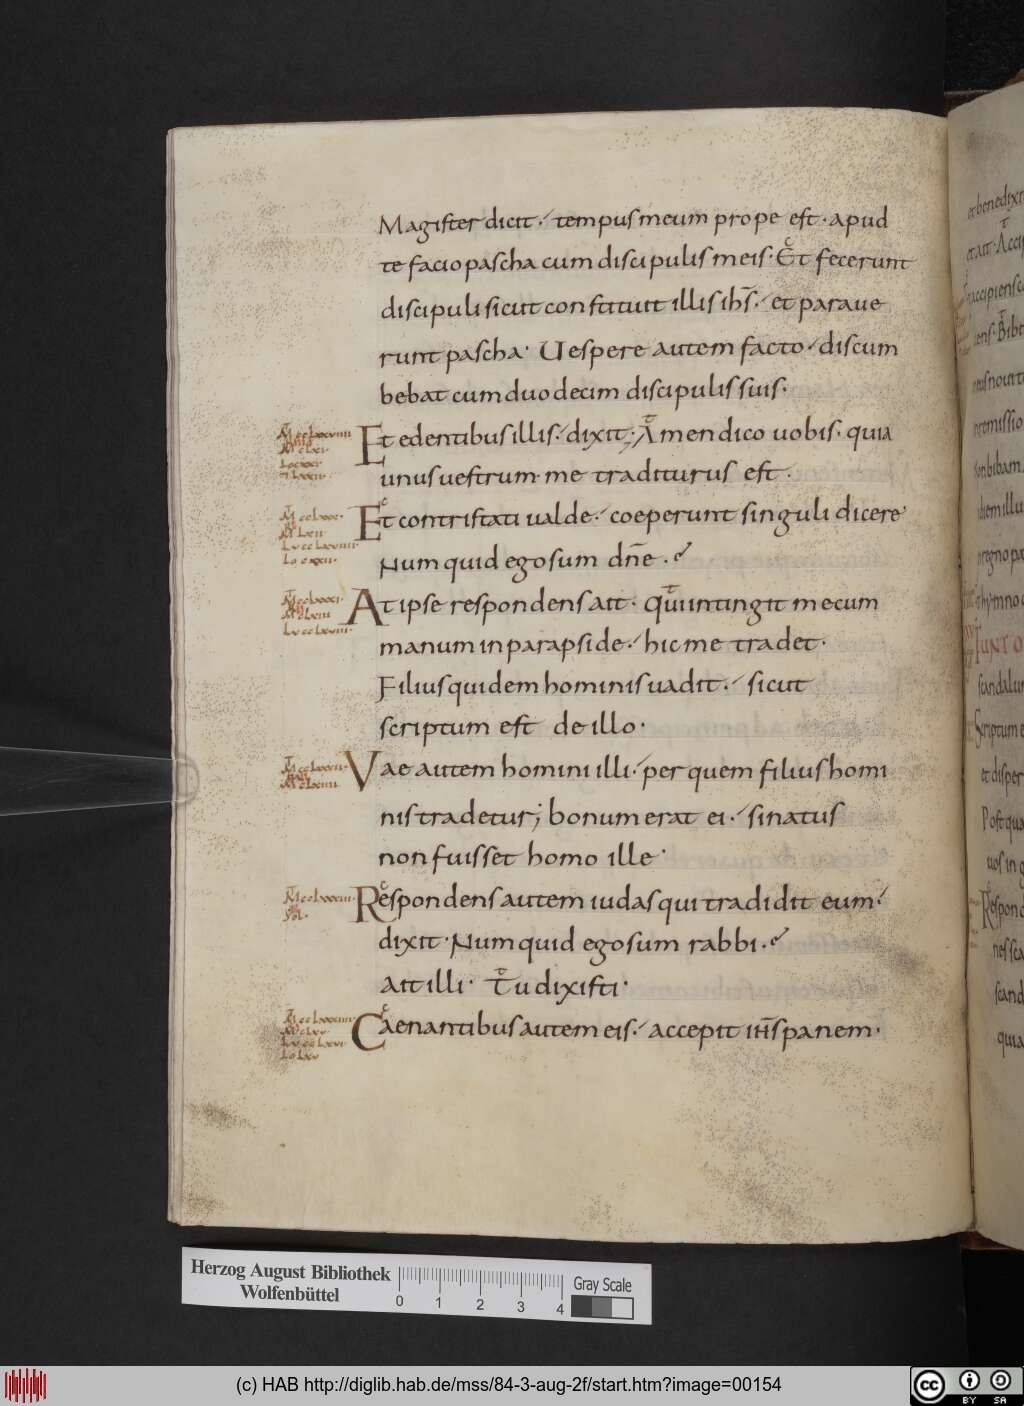 Magister dicit. tempus meum prope est. apud
te facio pascha cum discipulis meis. Et fecerunt
discipuli sicut constituit illis ihs. et paraue
runt pascha. Uespere autem facto. discum
bebat cum duodecim discipulis suis.
Et edentibus illis. dixit; Amen dico uobis. quia
unus uestrum me traditurus est.
Et contristati ualde. coeperunt singuli dicere
Numquid ego sum dne.
At ipse respondens ait. qui intingit mecum
manum in parapside. hic me tradet.
Filius quidem hominis uadit. sicut
scriptum est de illo.
Vae autem homini illi. per quem filius homi
nis tradetur; bonum erat ei. si natus
non fuisset homo ille.
Respondens autem iudas qui tradidit eum.
dixit. Numquid ego sum rabbi.
Ait illi. Tu dixisti.
Caenantibus autem eis. accepit ihs panem.
Herzog August Bibliothek
Wolfenbüttel
0 1 2 3 4
Gray Scale
(c) HAB http://diglib.hab.de/mss/84-3-aug-2f/start.htm?image=00154
cc BY SA